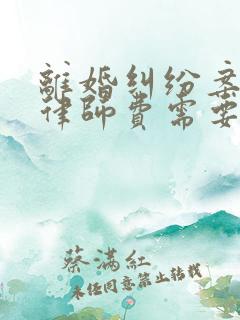 離婚糾紛案
律師費需要
蔡滿紅
未经同意禁止转载